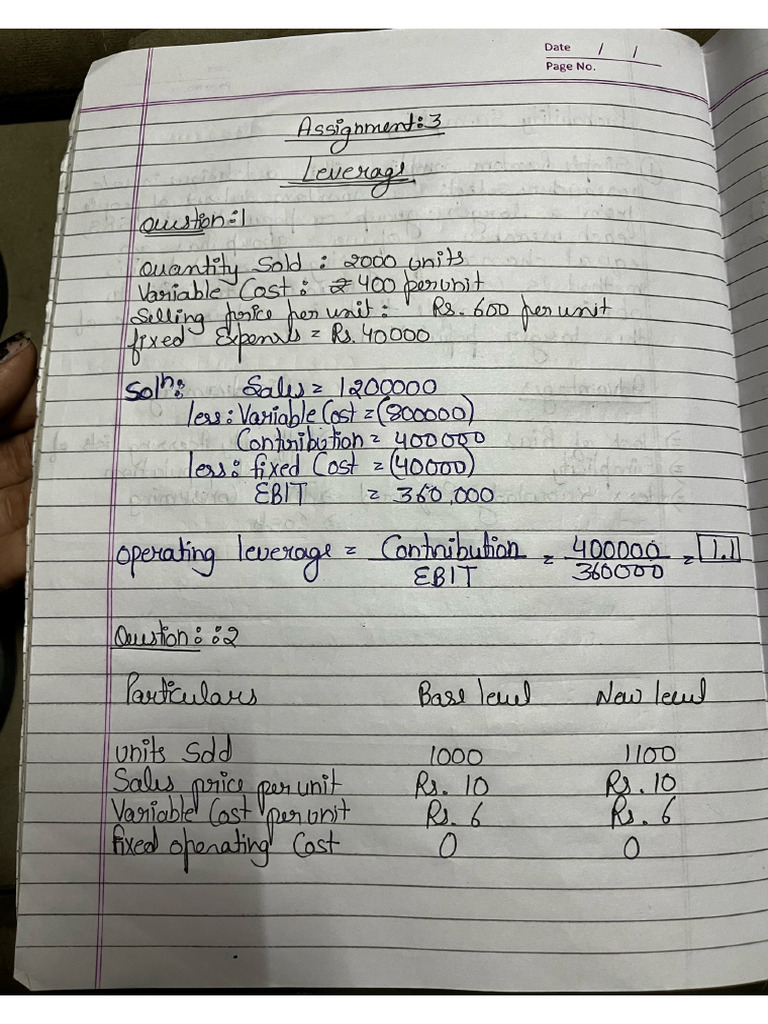 Date / /
Page No.
Assignment:3
Leverage
Question:1
Quantity Sold : 2000 units
Variable Cost : 400 per unit
Selling price per unit : Rs. 600 per unit
fixed Expenses = Rs. 40000
Solⁿ: Sales = 1200000
less: Variable Cost = (800000)
Contribution = 400000
less: fixed Cost = (40000)
EBIT = 360,000
Operating leverage = Contribution / EBIT = 400000 / 360000 = 1.1
Question::2
Particulars Base level New level
units Sold 1000 1100
Sales price per unit Rs. 10 Rs. 10
Variable Cost per unit Rs. 6 Rs. 6
fixed operating Cost 0 0